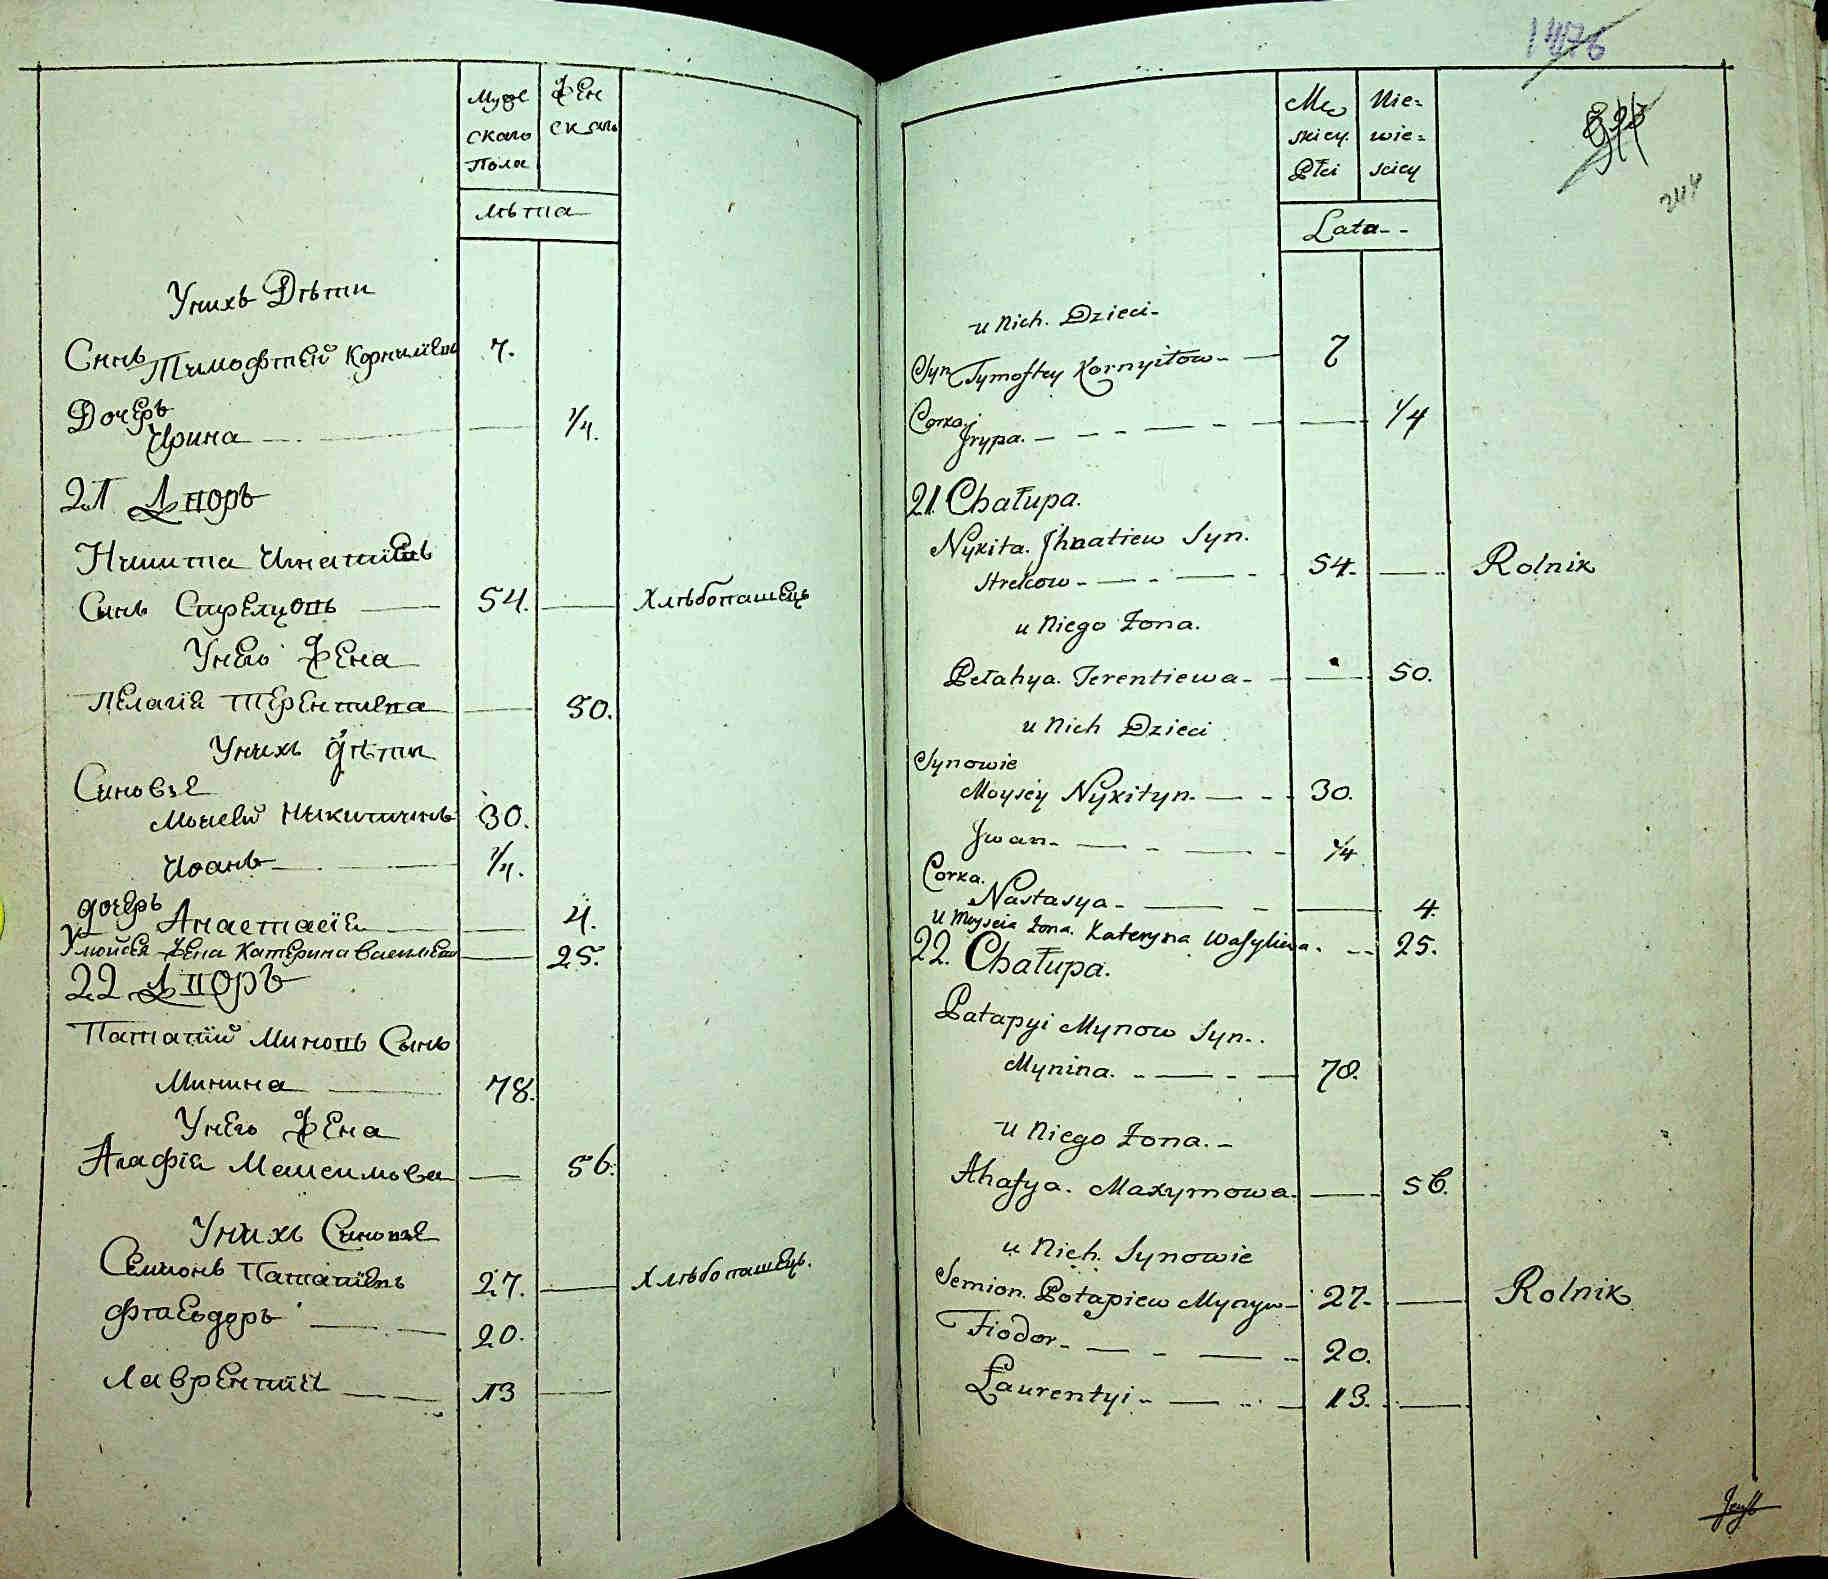 Муже Жен
скаго скаго
Пола
Лѣта
Унихъ Дѣти
Синъ Тимофтей Корнилїевъ 7.
Дочерь
Ирина 1/4.
21 Дворъ
Никита Игнатїевъ
Синъ Стрелцовъ 54. Хлѣбопашецъ
Унего Жена
Пелагїя Терентиева 50.
Унихъ дѣти
Синовѣя
Моисей Никитинъ 30.
Иоанъ 1/4.
дочерь Анастасїя 4.
Умойсея Жена Катерина Василева 25.
22 Дворъ
Патапїй Миновъ Сынъ
Минина 78.
Унего Жена
Агафїя Максимова 56.
Унихъ Синовѣя
Семионъ Патапїевъ 27. Хлѣбопашецъ.
Фтаеодоръ 20.
Лаврентїй 13
1476
Mę Nie=
skiey wie=
Płci sciey
244
Lata--
u Nich. Dzieci-
Syn Tymoftey Kornyiłow- 7
Corka.
Jrypa. 1/4
21. Chałupa.
Nykita. Jhnatiew Syn.
Strelcow- 54. Rolnik
u Niego Żona.
Pełahya. Terentiewa- 50.
u Nich Dzieci
Synowie
Moysey Nykityn. 30.
Jwan- 1/4
Corka.
Nastasya- 4.
U Moyseia Żona. Kateryna Wasyliwa. 25.
22. Chałupa.
Patapyi Mynow Syn..
Mynina. 78.
u Niego Żona.-
Ahafya. Maxymowa. 56.
u Nich. Synowie
Semion. Potapiew Mynyn- 27. Rolnik
Fiodor- 20.
Łaurentyi- 13.